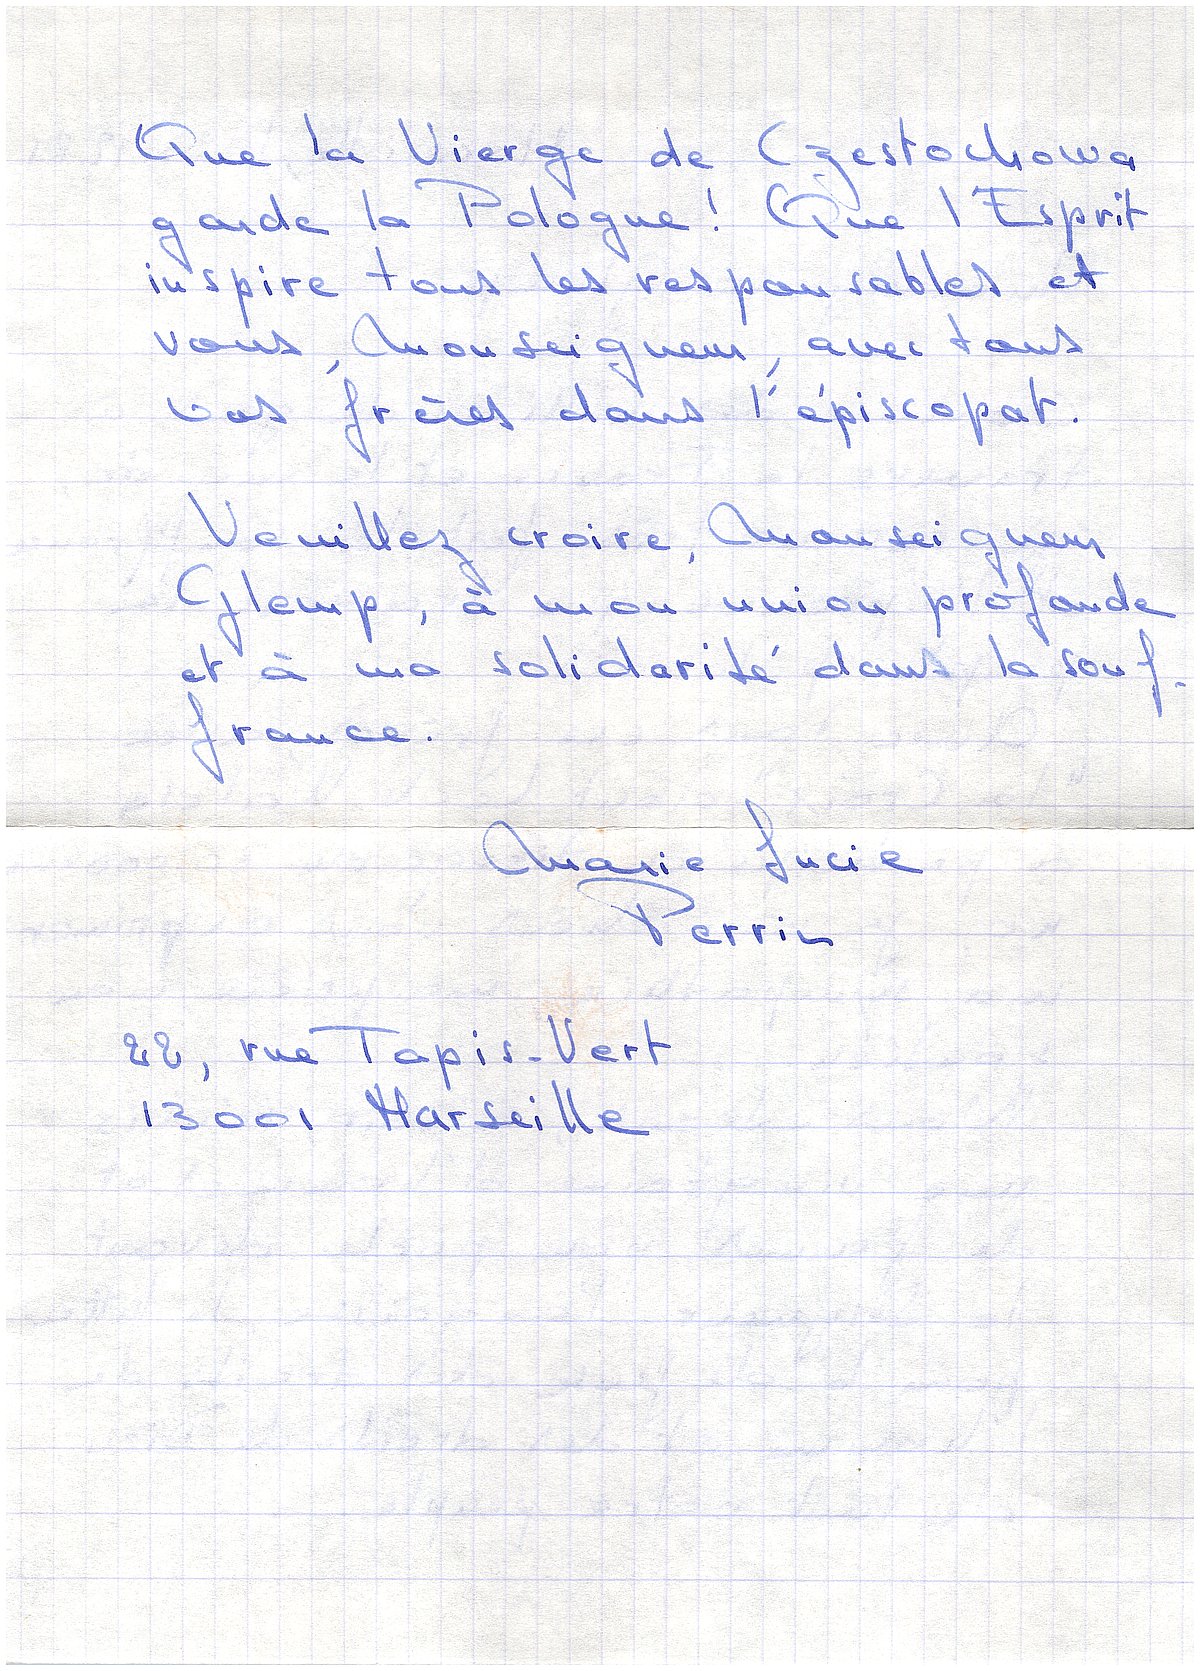 Que la Vierge de Częstochowa
garde la Pologne! Que l'Esprit
inspire tous les responsables et
vous, Monseigneur, avec tous
vos frères dans l'épiscopat.
Veuillez croire, Monseigneur
Glemp, à mon union profonde
et à ma solidarité dans la souf-
france.
Marie Lucie
Perrin
22, rue Tapis-Vert
13001 Marseille